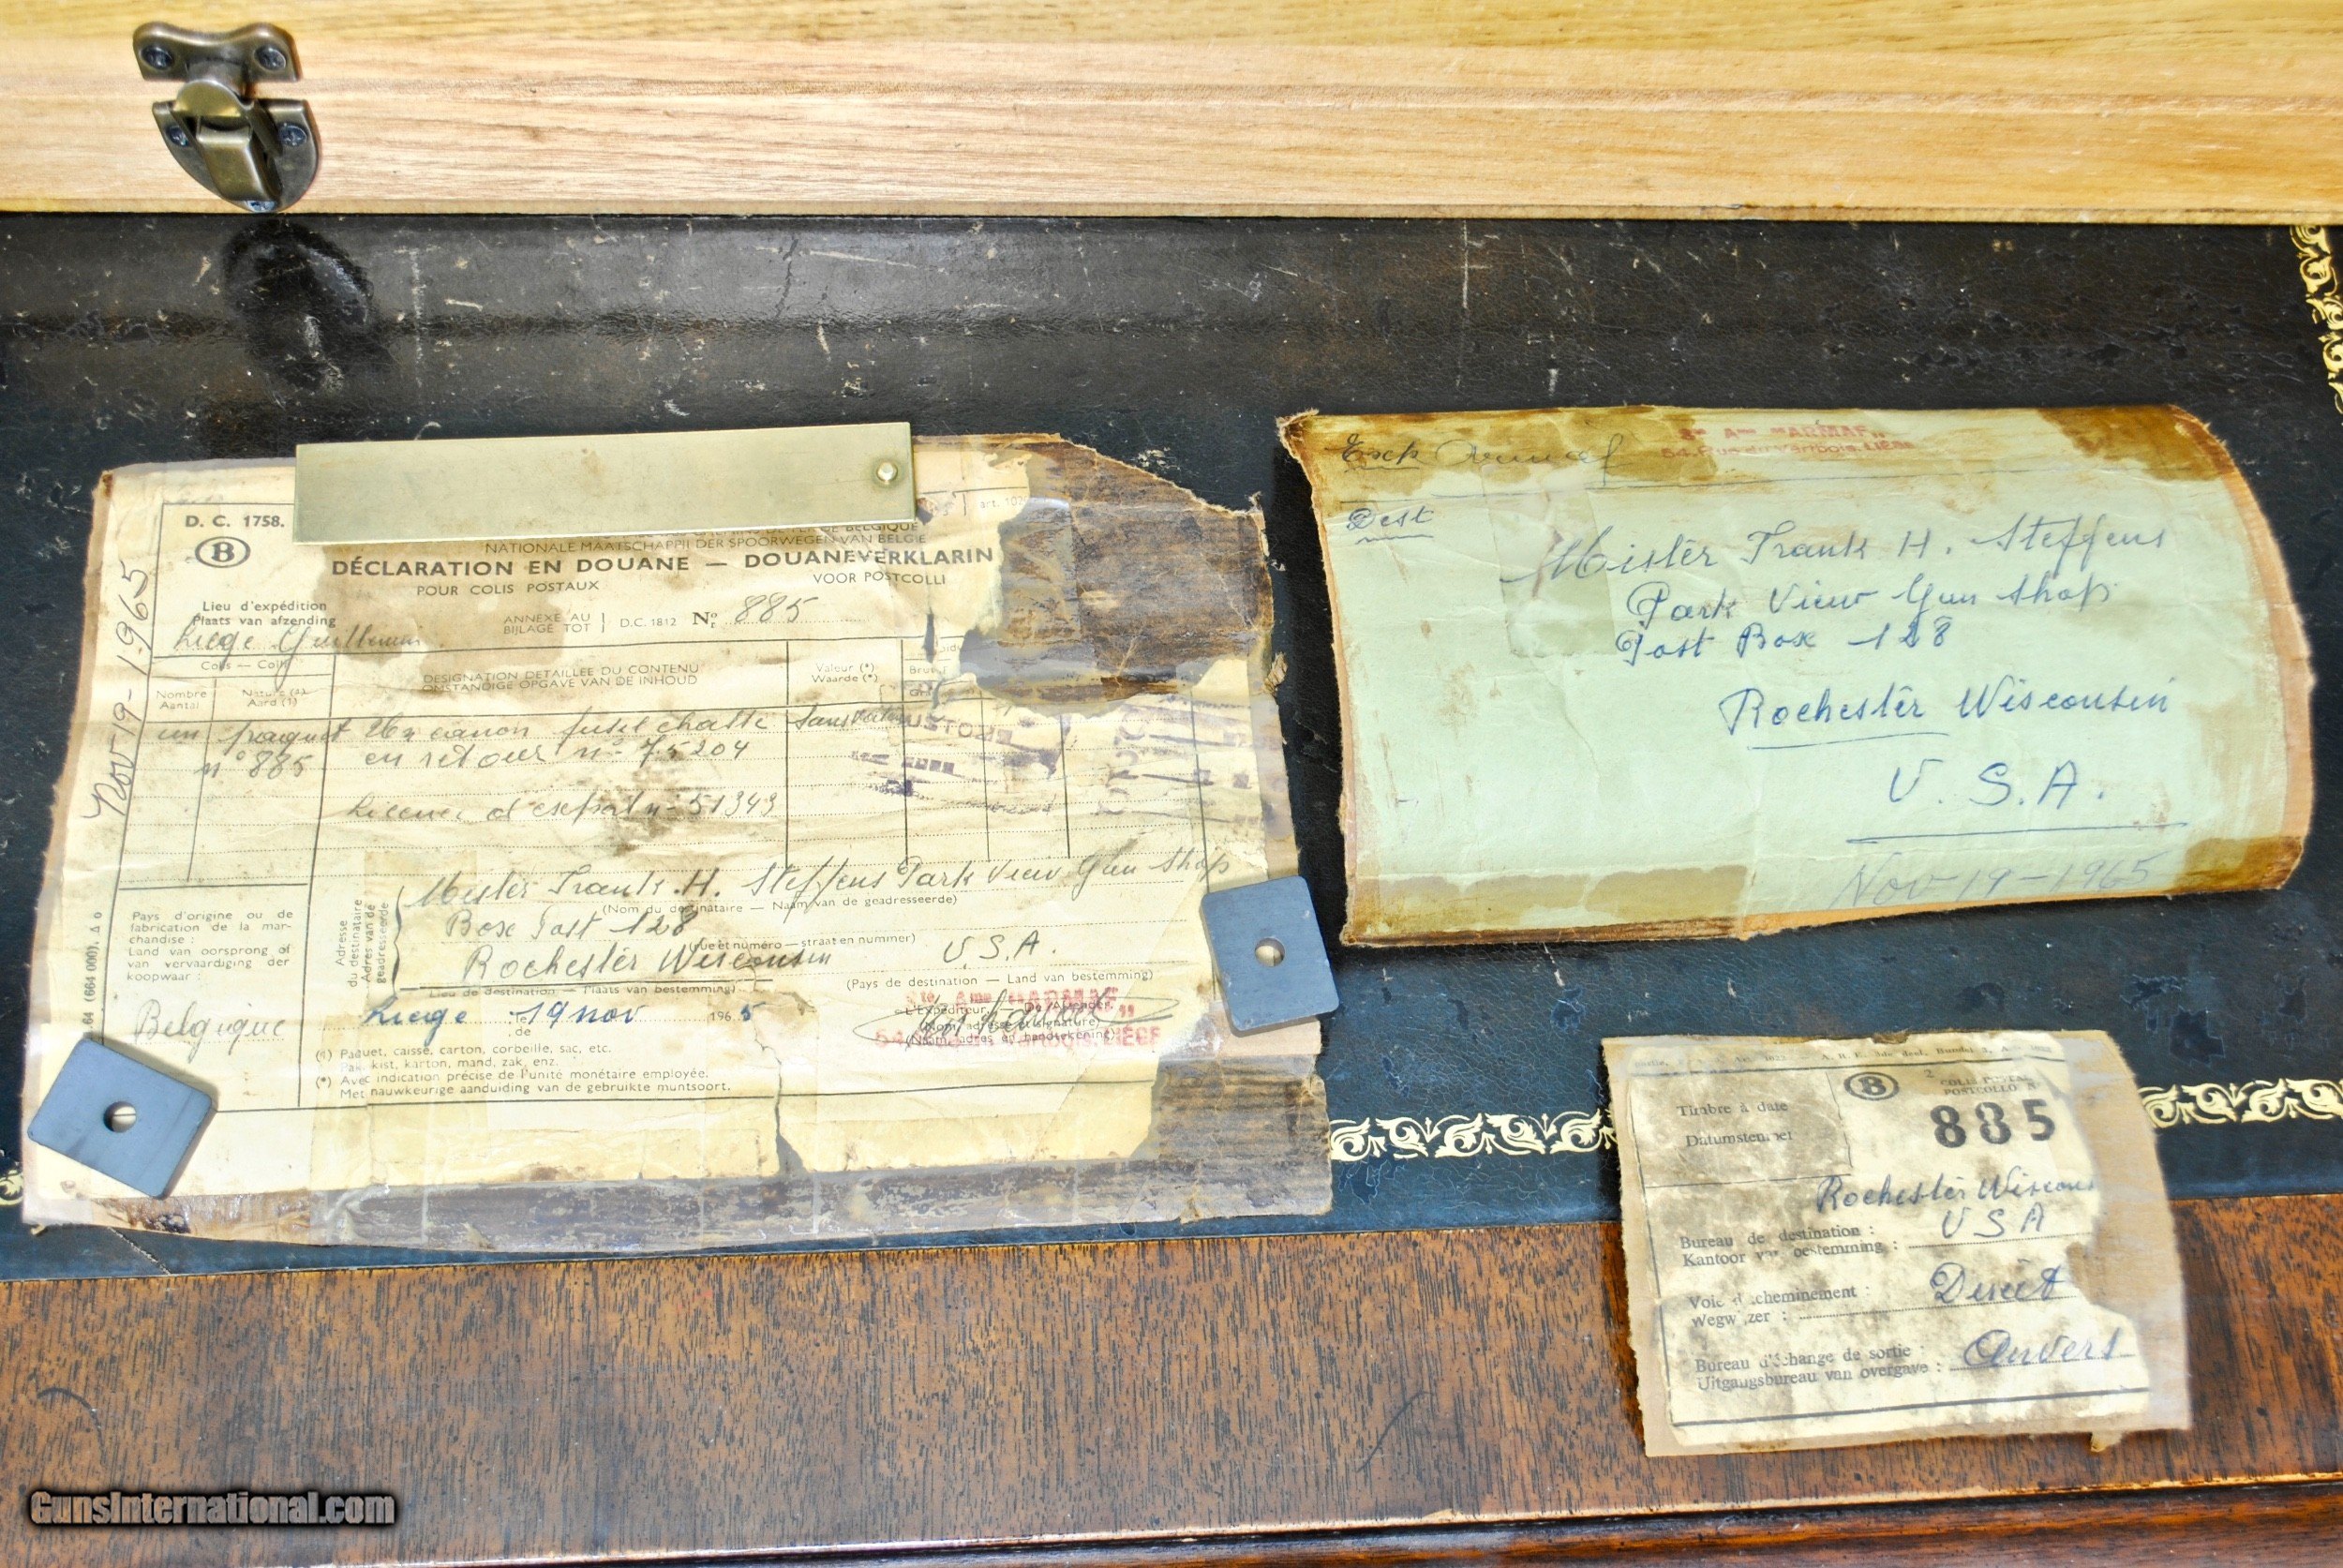 D. C. 1758.
B
NATIONALE MAATSCHAPPIJ DER SPOORWEGEN VAN BELGIE
DÉCLARATION EN DOUANE — DOUANEVERKLARIN
POUR COLIS POSTAUX
VOOR POSTCOLLI
Lieu d'expédition
Plaats van afzending
Liege Guillemins
ANNEXE AU
BIJLAGE TOT
D.C. 1812
No 885
Nov 19-1965
Colis — Colli
Nombre
Aantal
Nature (1)
Aard (1)
DESIGNATION DETAILLEE DU CONTENU
OMSTANDIGE OPGAVE VAN DE INHOUD
Valeur (*)
Waarde (*)
un paquet
n° 885
canon fusil
en retour n° 75204
n° 51343
Pays d'origine ou de
fabrication de la mar-
chandise :
Land van oorsprong of
van vervaardiging der
koopwaar :
Belgique
Adresse
du destinataire
Adres van de
geadresseerde
Mister Frank H. Steffens Park View Gun Shop
(Nom du destinataire — Naam van de geadresseerde)
Box Post 128
(rue et numéro — straat en nummer)
Rochester Wisconsin
U.S.A.
Lieu de destination — Plaats van bestemming)
(Pays de destination — Land van bestemming)
Liege le 19 nov 1965
de
L'Expéditeur — De Afzender
(Nom, adresse et signature)
(Naam, adres en handtekening)
(1) Paquet, caisse, carton, corbeille, sac, etc.
Pak, kist, karton, mand, zak, enz.
(*) Avec indication précise de l'unité monétaire employée.
Met nauwkeurige aanduiding van de gebruikte muntsoort.
Sté Ame "HARMAF"
54, Rue du Varbois, LIÉGE
Dest
Mister Frank H. Steffens
Park View Gun Shop
Post Box 128
Rochester Wisconsin
U.S.A.
Nov 19-1965
Timbre à date
Datumstempel
B
COLIS POSTAL
POSTCOLLO N
885
Rochester Wiscons
USA
Bureau de destination :
Kantoor van bestemming :
Direct
Bureau d'échange de sortie :
Uitgangsbureau van overgave :
Anvers
GunsInternational.com